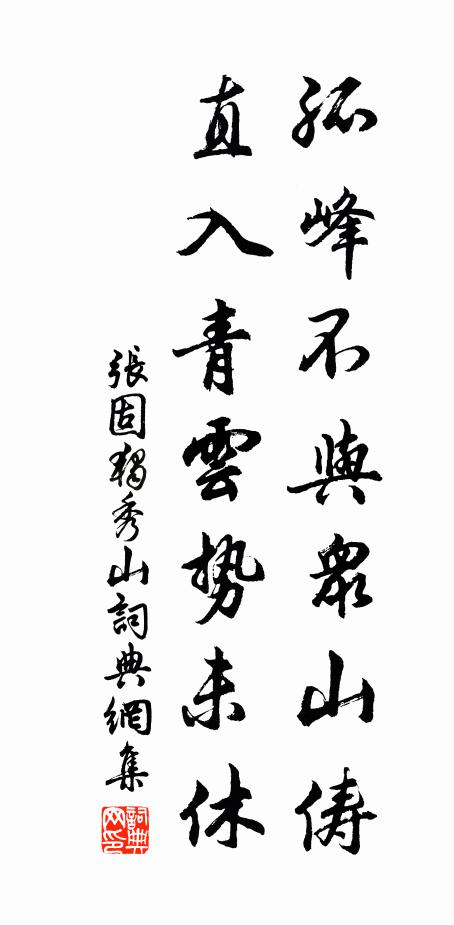 孤峰不與眾山儔
直入青雲勢未休
張固獨秀山詞典網集
詞典網印